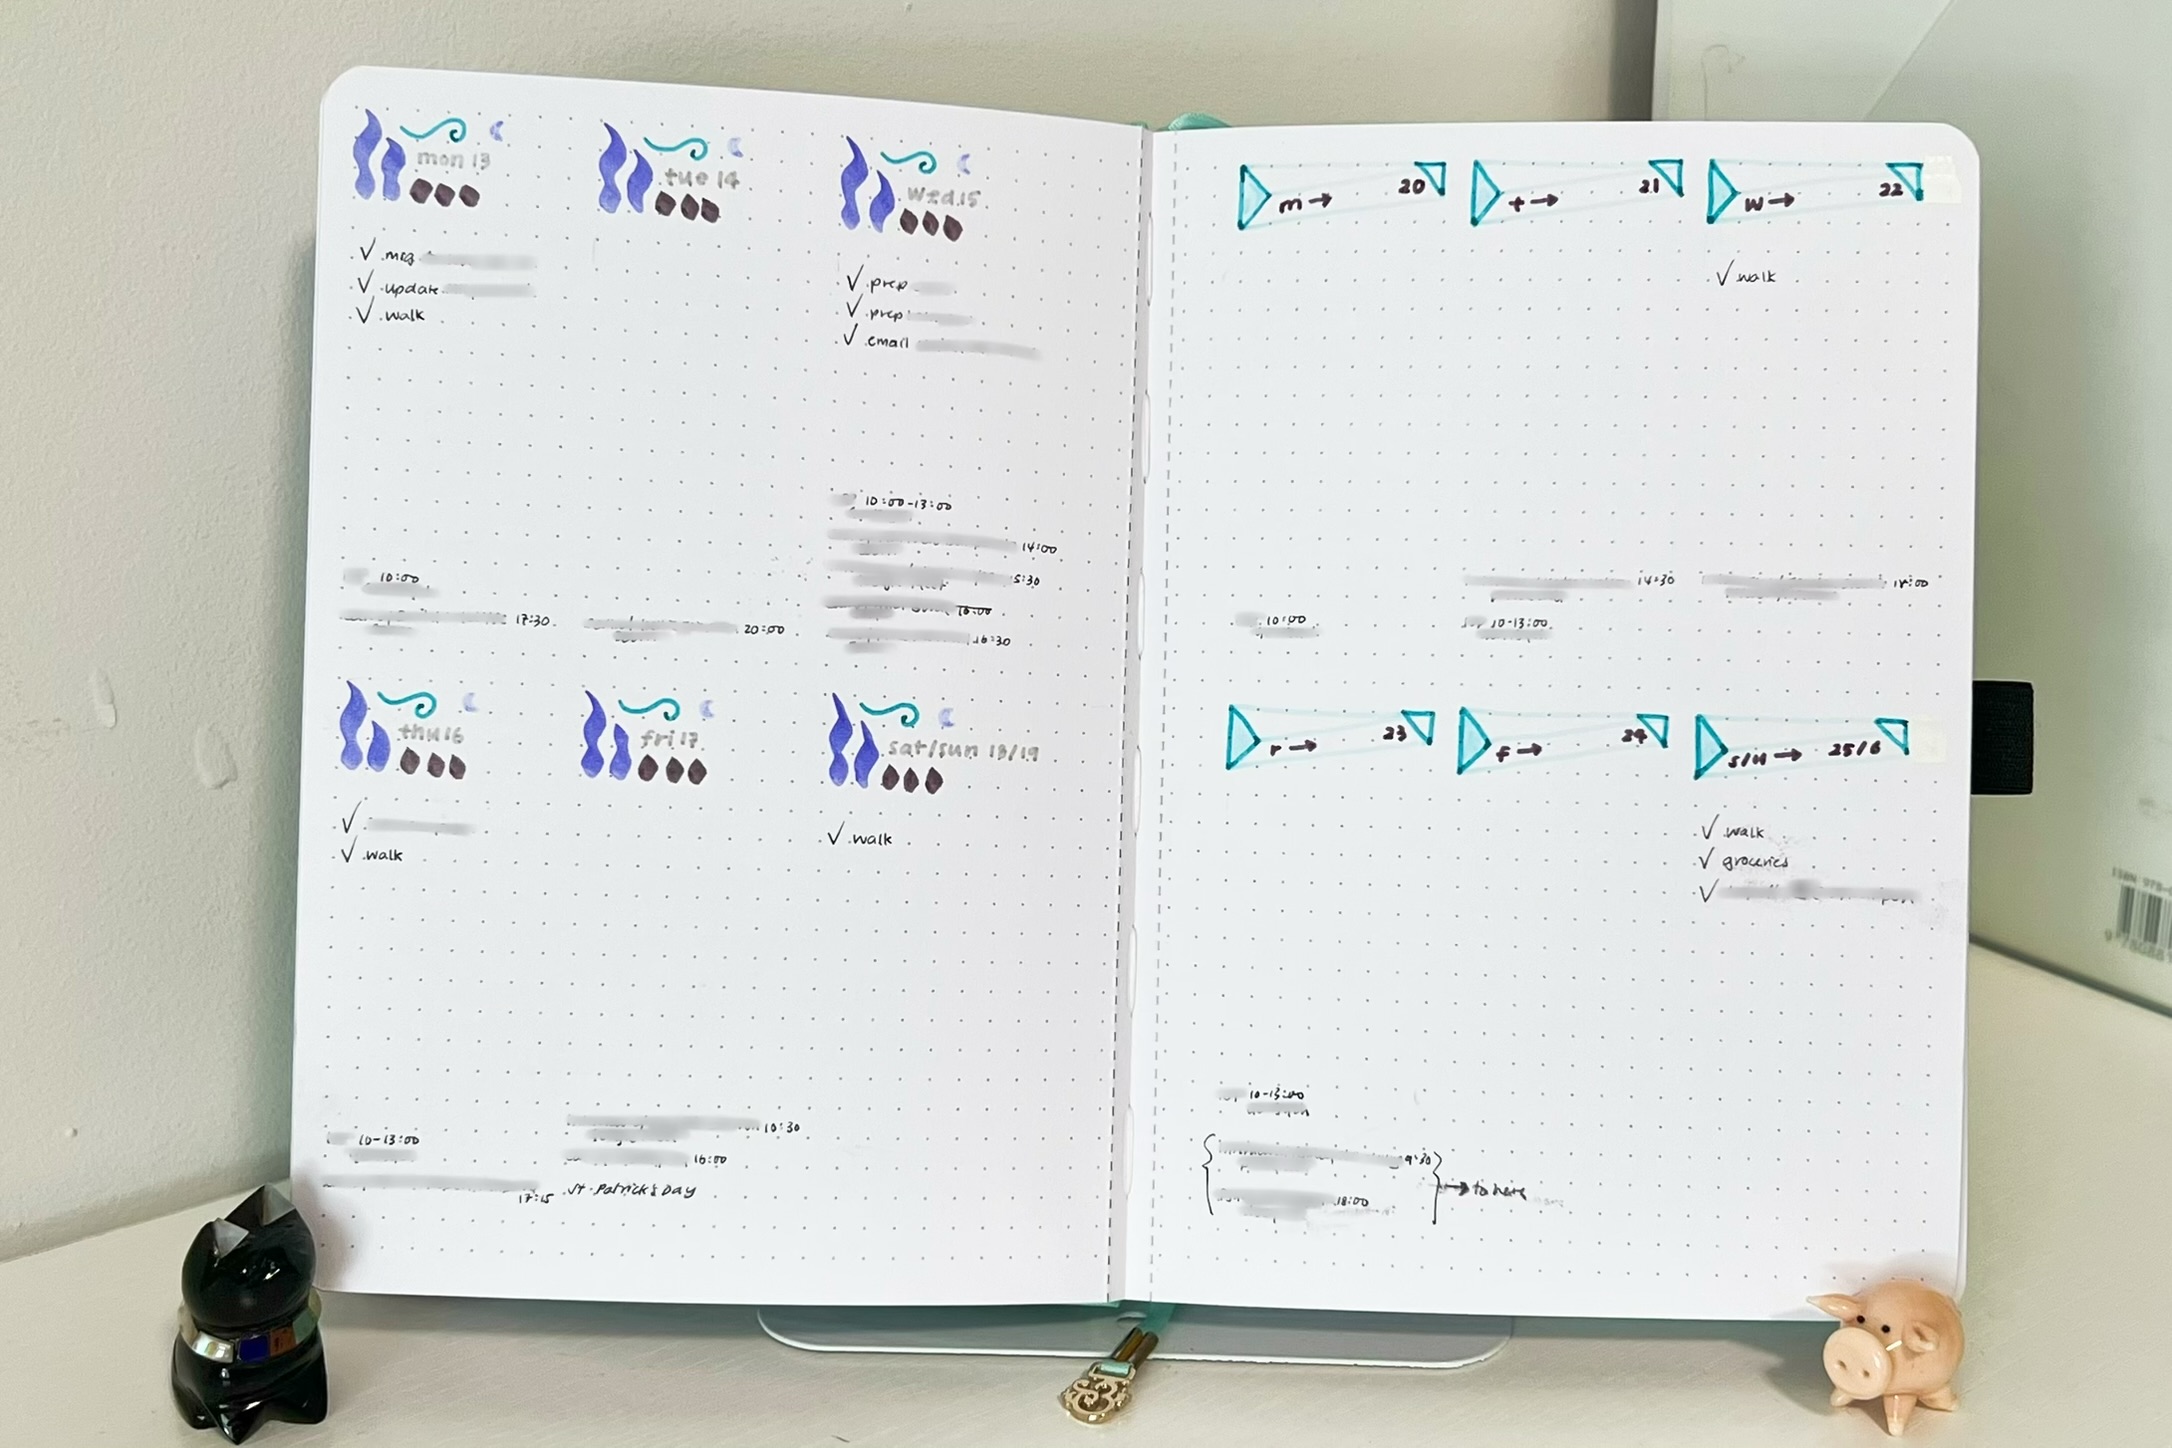 mon 13
✓ msg
✓ update
✓ walk
10:00
17:30
tue 14
20:00
wed 15
✓ prep
✓ prep
✓ email
10:00-13:00
14:00
5:30
16:00
16:30
thu 16
✓
✓ walk
10-13:00
17:15
fri 17
10:30
16:00
St. Patrick's Day
sat/sun 18/19
✓ walk
m → 20
10:00
t → 21
14:30
10-13:00
w → 22
✓ walk
r → 23
10-13:00
9:30
18:00
→ to here
f → 24
s/u → 25/6
✓ walk
✓ groceries
✓